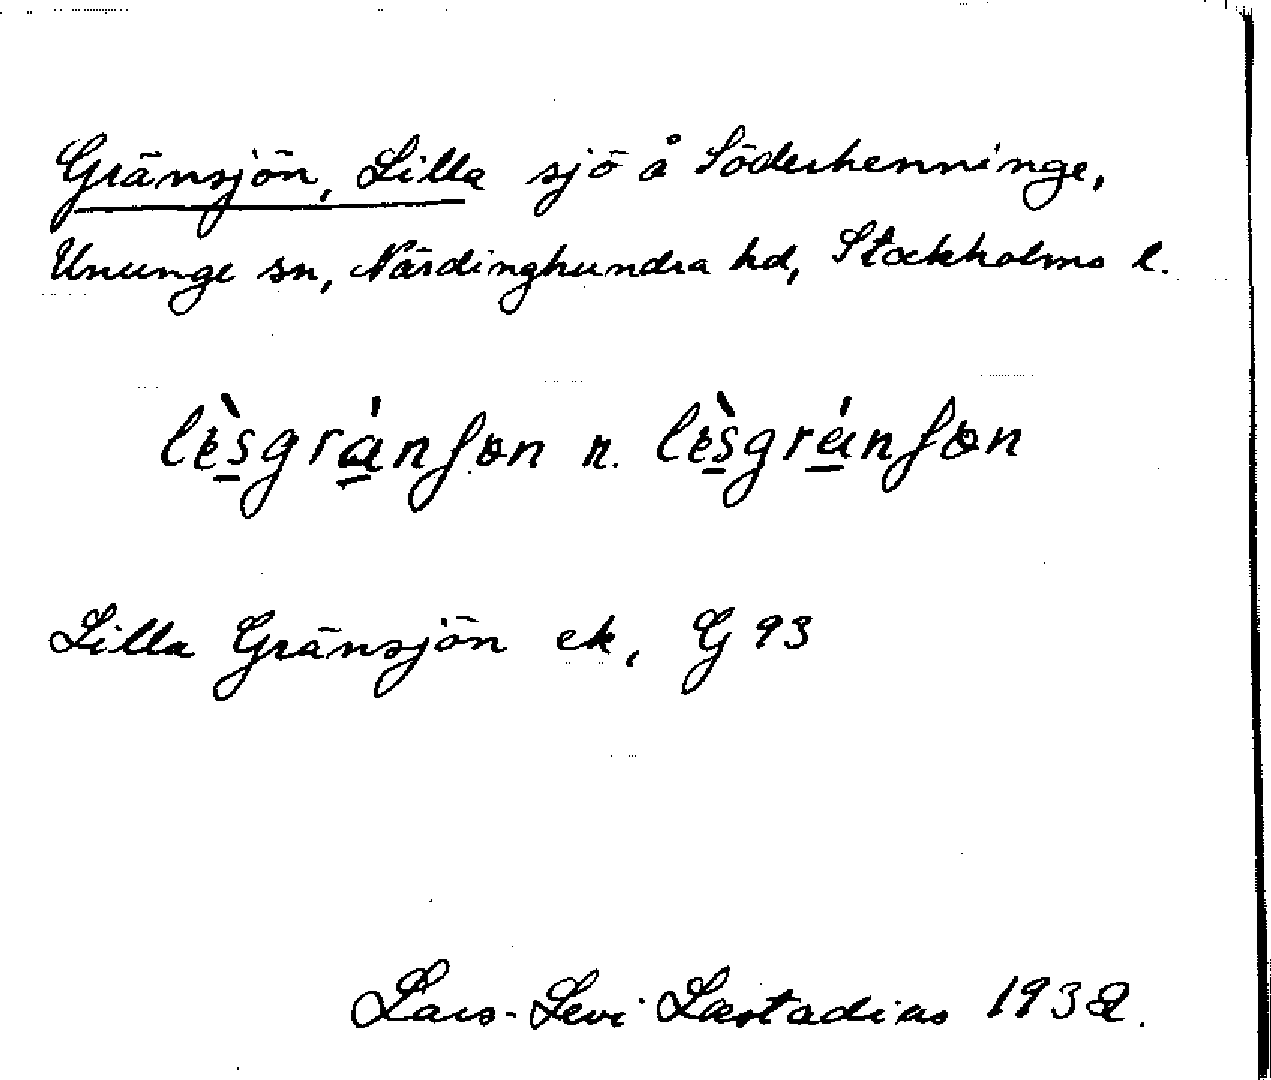 Gränsjön, Lilla sjö å Söderhenninge,
Ununge sn, Närdinghundra hd, Stockholms l.
n.
Lilla Gränsjön ek, G 93
Lars-Levi Læstadius 1932.